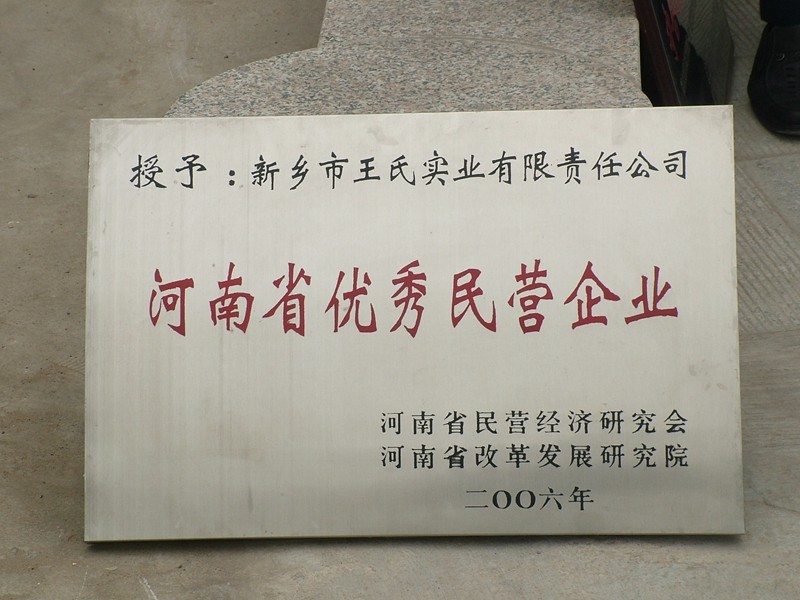 授予：新乡市王氏实业有限责任公司
河南省优秀民营企业
河南省民营经济研究会
河南省改革发展研究院
二〇〇六年